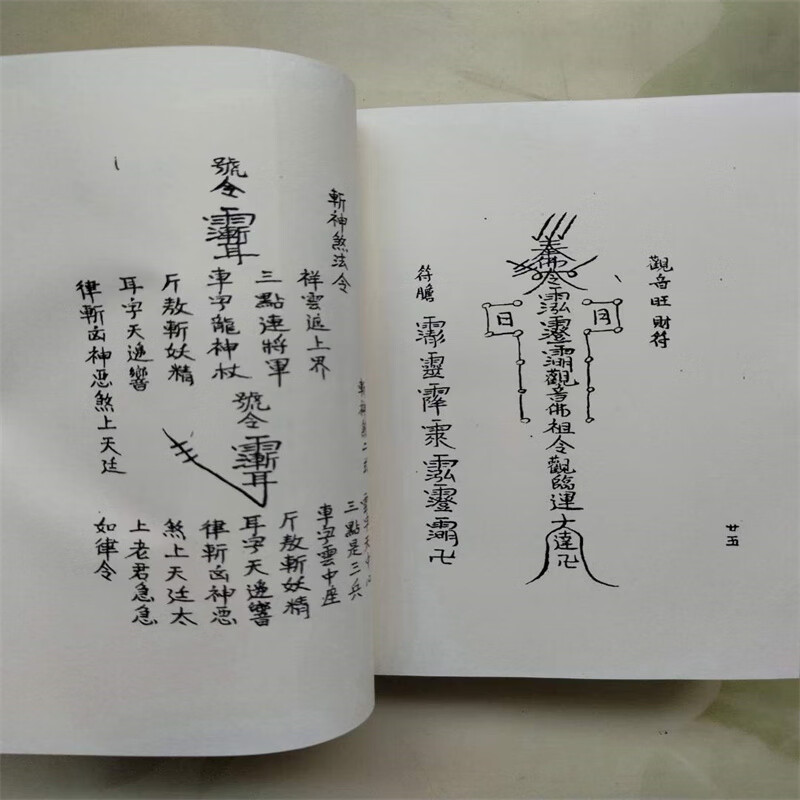 觀音旺財符
奉佛令
觀音佛祖令觀臨運大達卍
日
月
符膽
卍
廿五
斬神煞法令
號令
祥雲遮上界
三點連將軍
車字龍神杖
斤敖斬妖精
耳字天遞響
律斬凶神惡煞上天廷
號令
三點是三兵
車字雲中座
斤敖斬妖精
耳字天遞響
律斬凶神惡
煞上天廷太
上老君急急
如律令